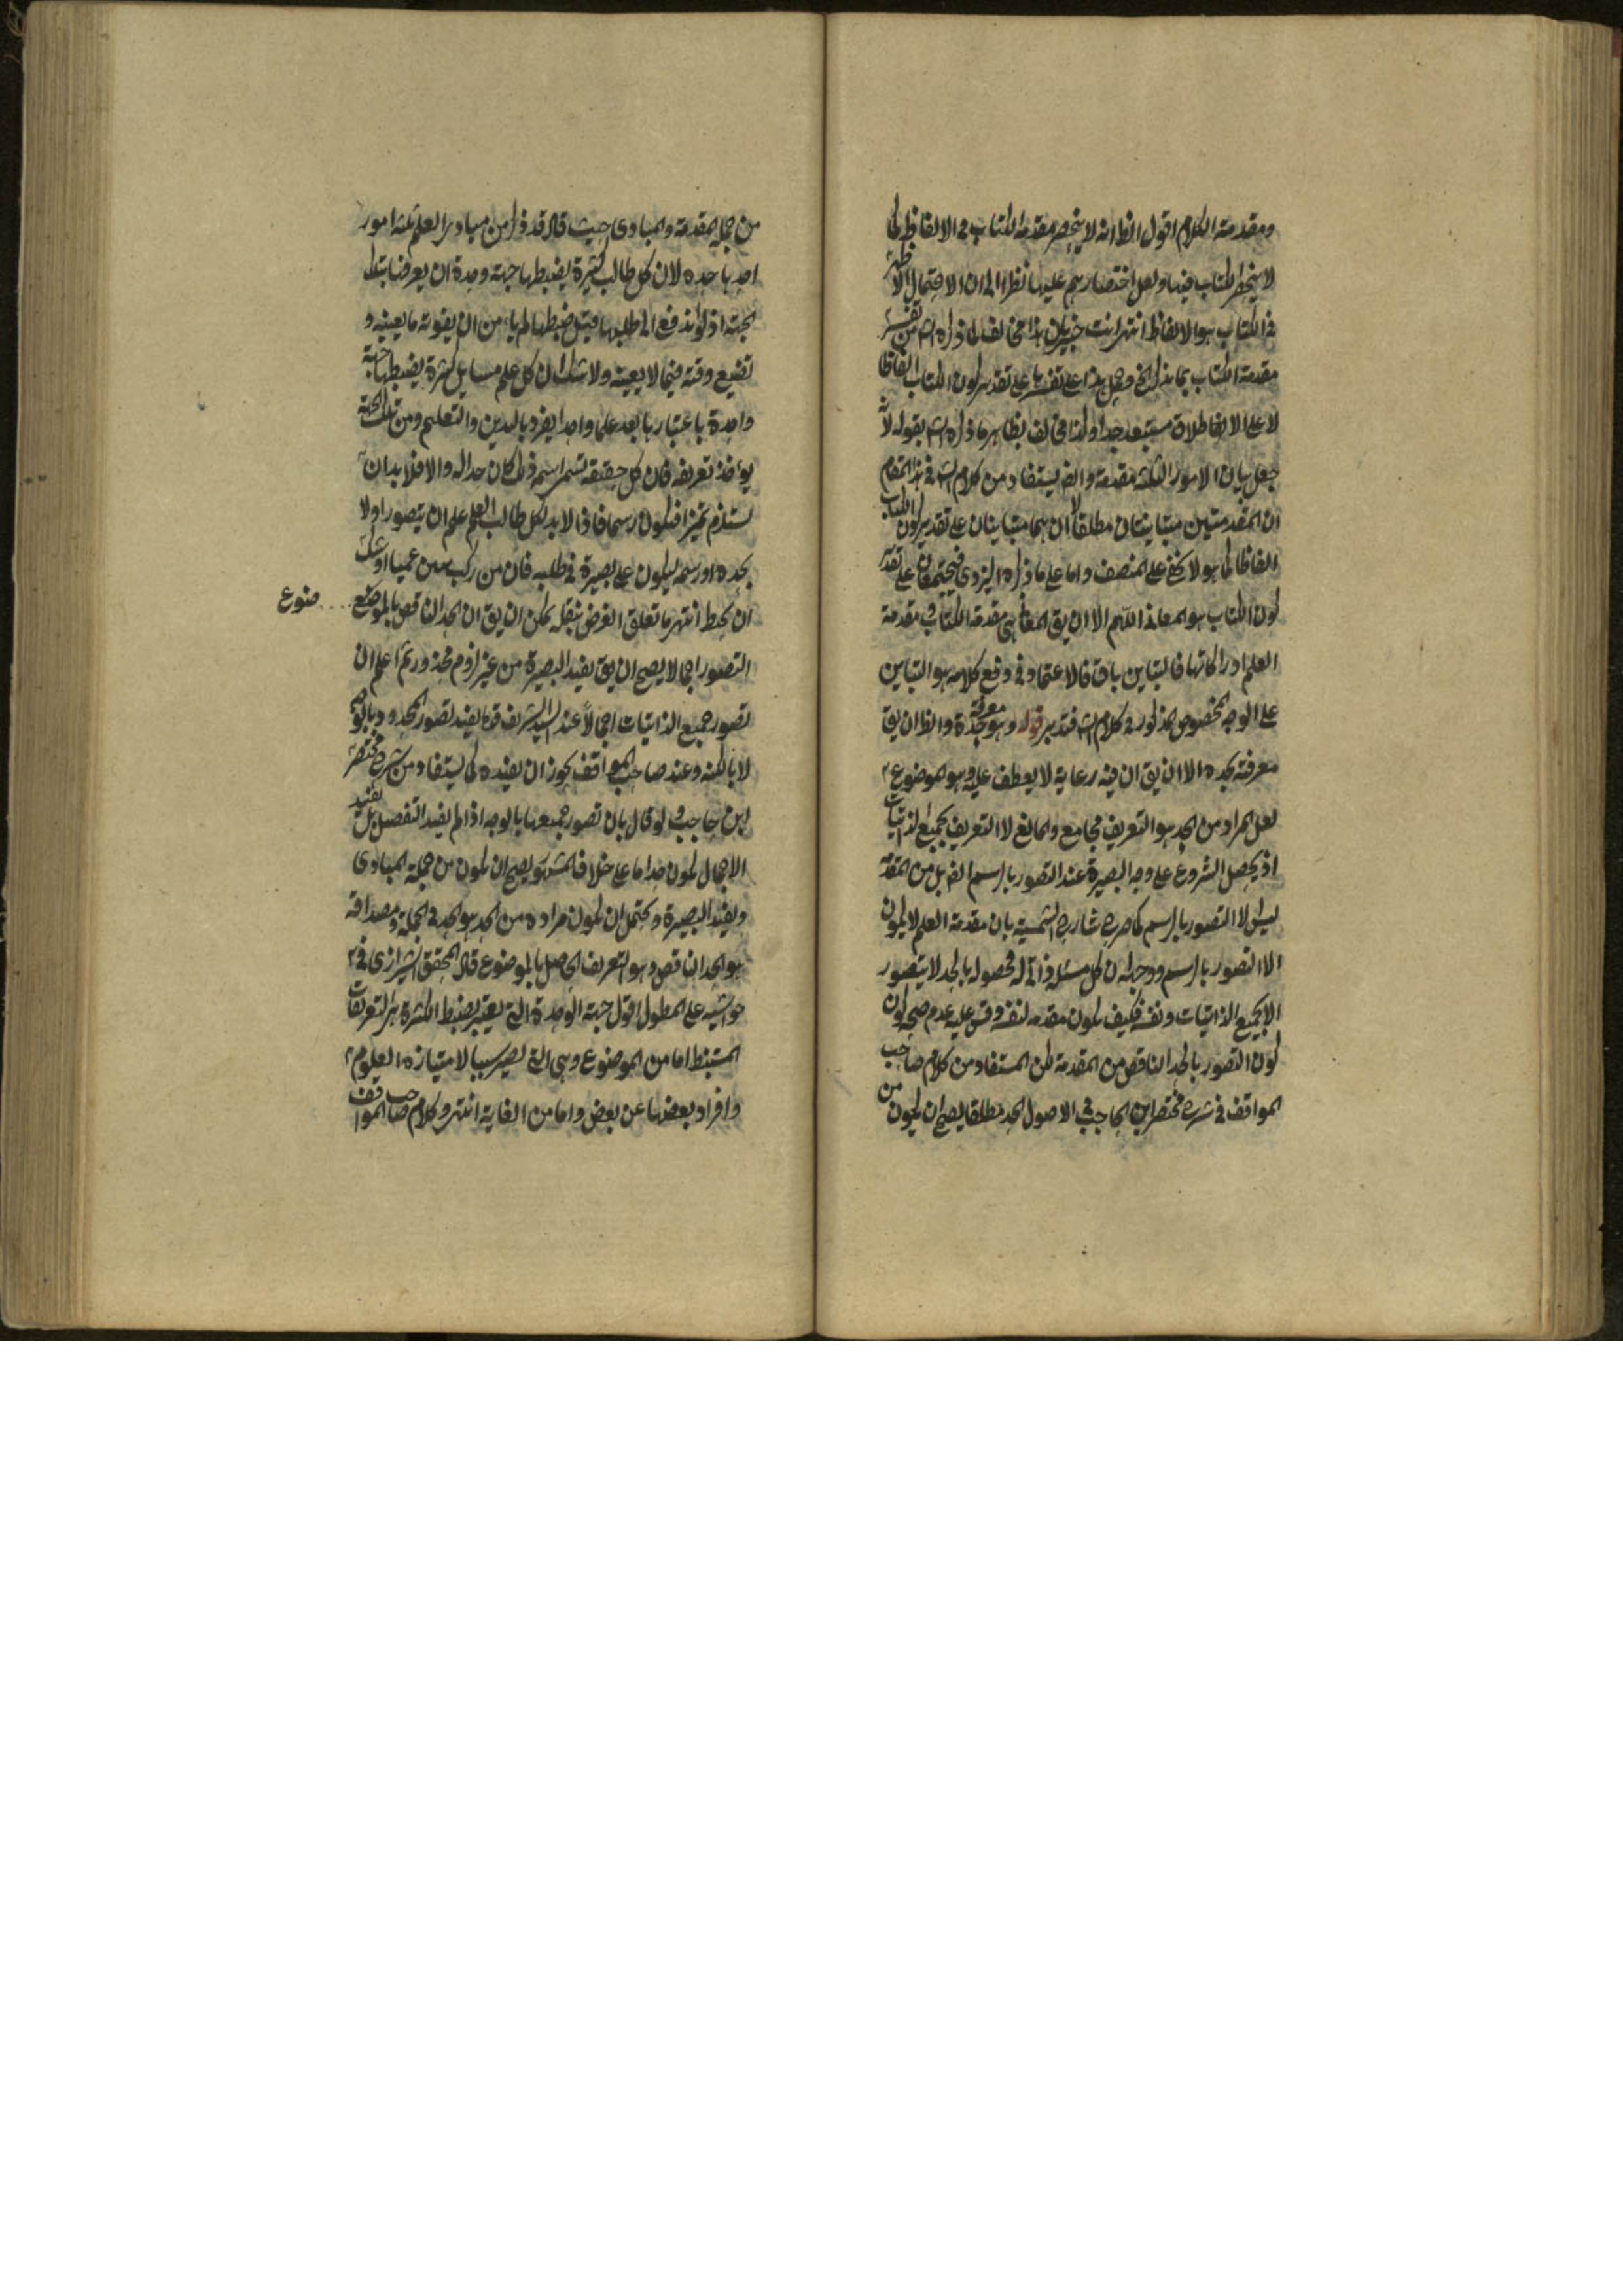 ومقدمة الكلام اقول الظ انه لا ينحصر مقدمة الكتاب فى الالفاظ كما
لا ينحصر الكتاب فيها ولعل اختصارهم عليها نظرا الى ان الاحتمال الاظهر
فى الكتاب هو الالفاظ انتهى انت خبير بان هذا مخالف لما ذكره الش من تفسير
مقدمة الكتاب بما يذكر الخ وحمل هذا على تفسيرها على تقدير كون الكتاب الفاظا
لا على الاطلاق مستبعد جدا وايضا مخالف بظاهر ما ذكره الش بقوله لانه
جعل بيان الامور الثلثة مقدمة وايضا يستفاد من كلام الش فى هذا المقام
ان المقدمتين متباينتان مطلقا لا ان هما متباينتان على تقدير كون الكتاب
الفاظا كما هو لا يخفى على المنصف واما على ما ذكره اليزدى فيجتمعان على تقدير
كون الكتاب هو المعانى اللهم الا ان يق المعانى هى مقدمة الكتاب ومقدمة
العلم ادراكاتها فالتباين باق فالاعتماد فى دفع كلامه هو التباين
على الوجه المخصوص المذكور فى كلام الش فتدبر قوله وهو معرفة بحده والظ ان يق
معرفته بحده الا ان يق ان فيه رعاية لا يعطف عليه وهو الموضوع
لعل المراد من الحد هو التعريف الجامع والمانع لا التعريف بجميع الذاتيات
اذ يحصل الشروع على وجه البصيرة عند التصور بالرسم ايضا بل من المقدمة
ليس الا التصور بالرسم كما صرح شارح الشمسية بان مقدمة العلم لا يكون
الا التصور بالرسم ووجهه ان كل مسئلة ذاتى له فحصوله بالحد لا يتصور
الا بجميع الذاتيات ونفسه فكيف يكون مقدمة لنفسه وقس عليه عدم صحة كون
كون التصور بالحد الناقص من المقدمة لكن المستفاد من كلام صاحب
المواقف فى شرح مختصر ابن الحاجب فى الاصول الحد مطلقا يصح ان يكون من
من جملة المقدمة والمبادى حيث قال قد ذكر من مبادى العلم ثلثة امور
احدها حده لان كل طالب كثيرة يضبطها جهة وحدة ان يعرفها بتلك
الجهة اذ لو اندفع الى طلبها قبل ضبطها لم يأمن ان يفوته ما يعنيه و
تضيع وقته فيما لا يعنيه ولا شك ان كل علم مسايل كثيرة يضبطها جهة
واحدة باعتبارها يعد علما واحدا يفرد بالتدوين والتعليم ومن تلك الجهة
يؤخذ تعريفه فان كل حقيقة تسمى اسمه فذلك كان حدا له والا فلا بد ان
يستلزم تميزا فيكون رسما فاذا لا بد لكل طالب العلم علم ان يتصور اولا
بحده او رسمه ليكون على بصيرة فى طلبه فان من ركب متن عميا اوشك
ان يخبط انتهى ما تعلق الغرض بنقله يمكن ان يق ان الحد الناقص بالموضوع
ضوع
التصور اجمالا يصح ان يق يفيد البصيرة من غير لزوم محذور ثم اعلم ان
تصور جميع الذاتيات اجمالا عند السيد الشريف قده يفيد تصور المحدود بالوجه
لا بالكنه وعند صاحب المواقف يجوز ان يفيده كما يستفاد من شرح مختصر
ابن حاجب ولو قال بان تصور جميعها بالوجه اذا لم يفيد التفصيل بل يفيد
الاجمال يكون حدا ما على خلاف المشهور يصح ان يكون من جملة المبادى
ويفيد البصيرة ويحتمل ان يكون مراده من الحد هو الحد فى الجملة ومصداقه
هو الحد الناقص وهو التعريف الحاصل بالموضوع قال المحقق الشيرازى فى
حواشيه على المطول اقول جهة الوحدة التى يعتبر يضبط الكثرة هى التعريفات
المستنبط اما من الموضوع وهى التى يصير سببا لامتياز العلوم
وافراد بعضها عن بعض واما من الغاية انتهى وكلام صاحب المواقف